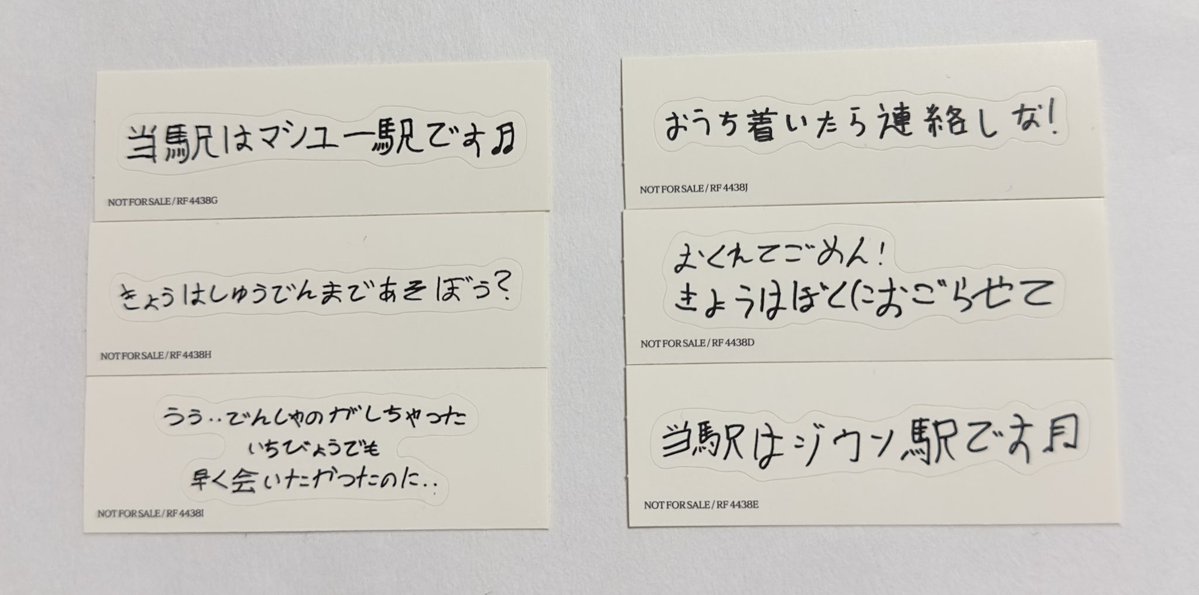 当駅はマシュー駅です♬
NOT FOR SALE / RF 4438G
きょうはしゅうでんまであそぼう?
NOT FOR SALE / RF 4438H
うう‥でんしゃのがしちゃった
いちびょうでも
早く会いたかったのに‥
NOT FOR SALE / RF 4438I
おうち着いたら連絡しな!
NOT FOR SALE / RF 4438J
おくれてごめん!
きょうはぼくにおごらせて
NOT FOR SALE / RF 4438D
当駅はジウン駅です♬
NOT FOR SALE / RF 4438E